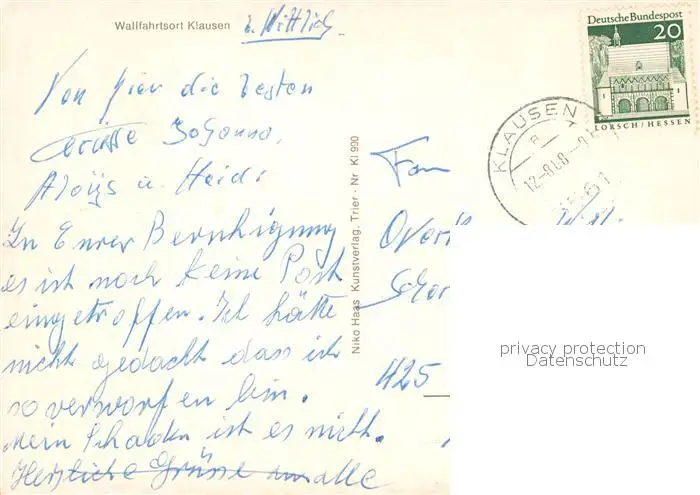 Wallfahrtsort Klausen b. Wittlich.
Von hier die besten
Grüsse Johanna,
Aloys u. Heidi
In Eurer Beruhigung
es ist noch keine Post
eingetroffen. Ich hätte
nicht gedacht dass ich
so verworfen bin.
Mein Schaden ist es nicht.
Herzliche Grüsse an alle
Niko Haas Kunstverlag, Trier · Nr Kl 990
Deutsche Bundespost
20
LORSCH/HESSEN
KLAUSEN
Fam
425
privacy protection
Datenschutz